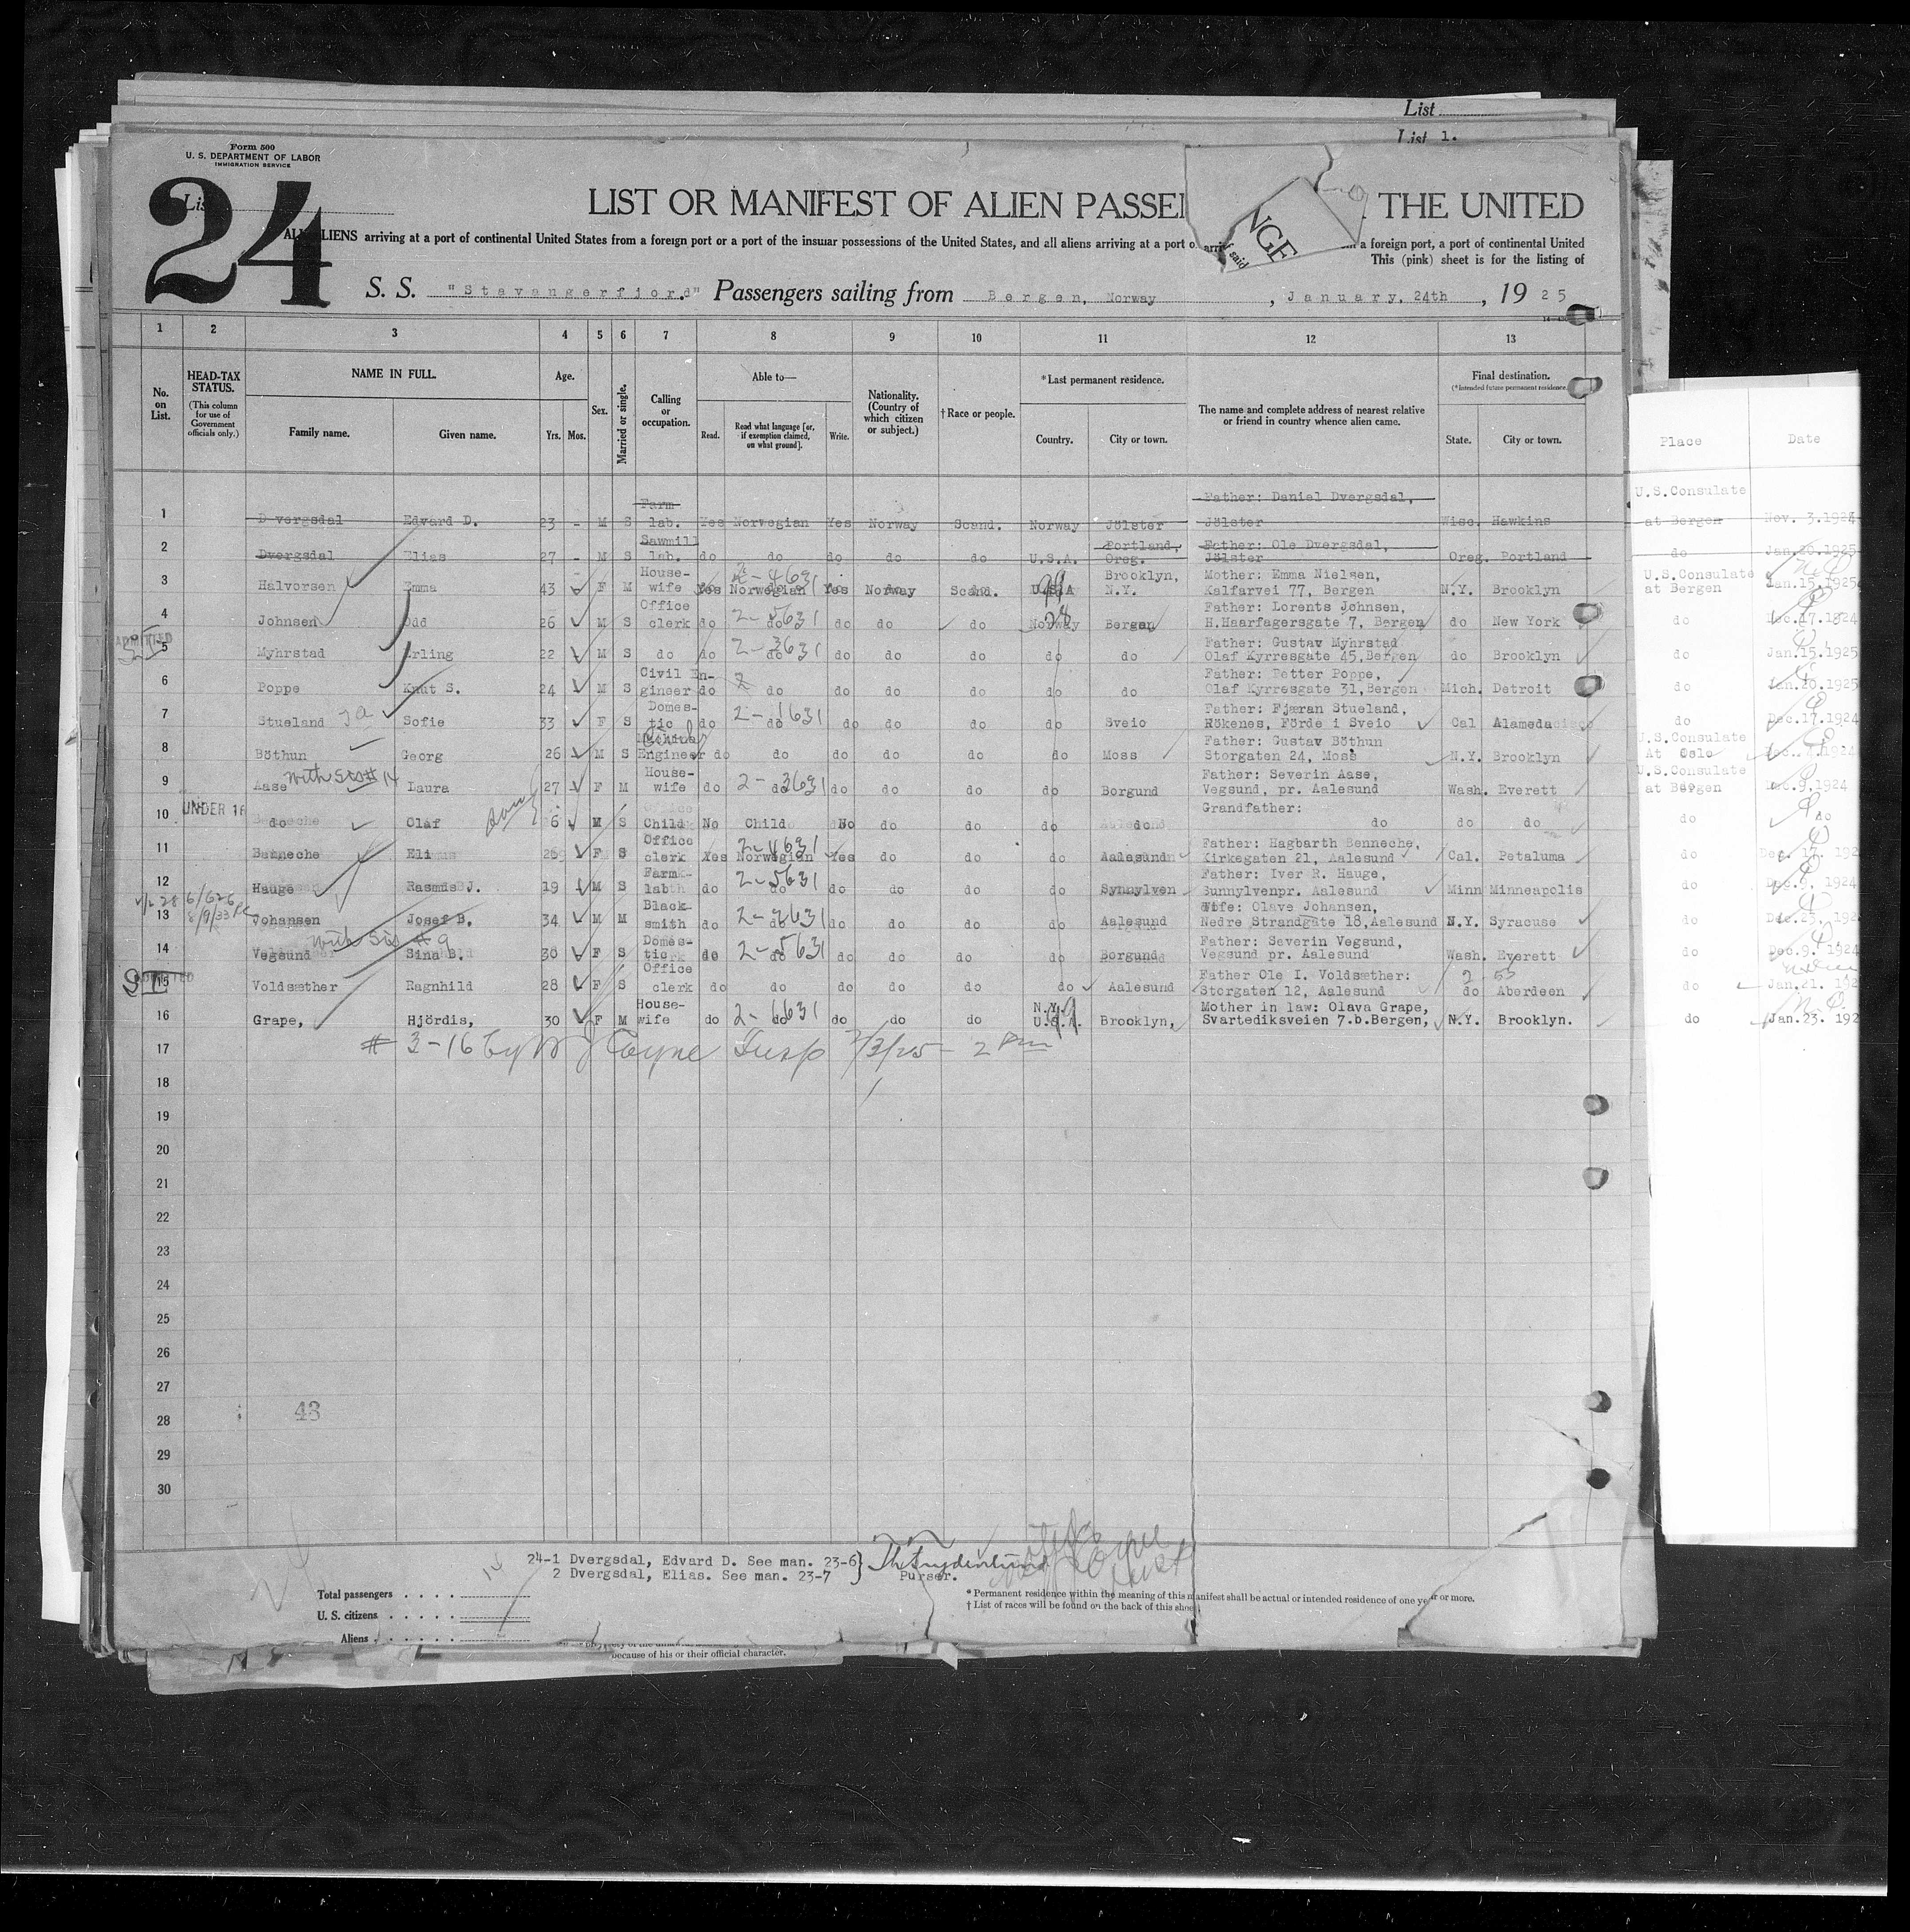 List
List 1.
Form 500
U. S. DEPARTMENT OF LABOR
IMMIGRATION SERVICE
List
24
LIST OR MANIFEST OF ALIEN PASSE THE UNITED
ALL ALIENS arriving at a port of continental United States from a foreign port or a port of the insular possessions of the United States, and all aliens arriving at a port o a foreign port, a port of continental United
This (pink) sheet is for the listing of
NGE
S. S. "Stavangerfjord" Passengers sailing from Bergen, Norway, January, 24th, 1925
1 2 3 4 5 6 7 8 9 10 11 12 13
No. on List.
HEAD-TAX STATUS.
(This column for use of Government officials only.)
NAME IN FULL.
Family name. Given name.
Age.
Yrs. Mos.
Sex.
Married or single.
Calling or occupation.
Able to—
Read. Read what language [or, if exemption claimed, on what ground]. Write.
Nationality. (Country of which citizen or subject.)
† Race or people.
*Last permanent residence.
Country. City or town.
The name and complete address of nearest relative or friend in country whence alien came.
Final destination.
(*Intended future permanent residence.)
State. City or town.
Place Date
1 Dvergsdal Edvard D. 23 - M S Farm lab. Yes Norwegian Yes Norway Scand. Norway Jölster Father: Daniel Dvergsdal, Jölster Wisc. Hawkins U.S.Consulate at Bergen Nov. 3.1924
2 Dvergsdal Elias 27 - M S Sawmill lab. do do do do do U.S.A. Portland, Oreg. Father: Ole Dvergsdal, Jölster Oreg. Portland do Jan.20.1925
3 Halvorsen Emma 43 F M House-wife Yes Norwegian Yes Norway Scand. U.S.A Brooklyn, N.Y. Mother: Emma Nielsen, Kalfarvei 77, Bergen N.Y. Brooklyn U.S.Consulate at Bergen Jan.15.1925
4 Johnsen Odd 26 M S Office clerk do 2-5631 do do do do Norway Bergen Father: Lorents Johnsen, H.Haarfagersgate 7, Bergen do New York do Dec.17.1924
5 Myhrstad Erling 22 M S do do 2-3631 do do do do do do Father: Gustav Myhrstad Olaf Kyrresgate 45,Bergen do Brooklyn do Jan.15.1925
6 Poppe Knut S. 24 M S Civil En-gineer do do do do do do do Father: Petter Poppe, Olaf Kyrresgate 31,Bergen Mich. Detroit do Jan.20.1925
7 Stueland Sofie 33 F S Domes-tic do 2-1631 do do do do do Sveio Father: Fjæran Stueland, Rökenes, Förde i Sveio Cal Alameda do Dec.17.1924
8 Böthun Georg 26 M S Engineer do do do do do do Moss Father: Gustav Böthun Storgaten 24, Moss N.Y. Brooklyn U.S.Consulate At Oslo
9 Aase With Sis # 14 Laura 27 F M House-wife do 2-3631 do do do do do Borgund Father: Severin Aase, Vegsund, pr. Aalesund Wash. Everett U.S.Consulate at Bergen Dec.9.1924
10 UNDER 16 do Olaf 6 M S Child No Child No do do do do Grandfather: do do do do do
11 Benneche Eli F S Office clerk Yes 2-1631 Norwegian Yes do do do Aalesund Father: Hagbarth Benneche, Kirkegaten 21, Aalesund Cal. Petaluma do Dec. 17. 192
12 Hauge Rasmus J. 19 M S Farm lab do 2-5631 do do do do Synnylven Father: Iver R. Hauge, Sunnylvenpr. Aalesund Minn Minneapolis do Dec.9. 1924
13 Johansen Josef B. 34 M M Black-smith do 2-2631 do do do do do Aalesund Wife: Olave Johansen, Nedre Strandgate 18,Aalesund N.Y. Syracuse do Dec.23. 192
14 Vegsund With Sis # 9 Sina B. 30 F S Domes-tic do 2-5631 do do do do do Borgund Father: Severin Vegsund, Vegsund pr. Aalesund Wash. Everett do Dec.9. 1924
15 Voldsæther Ragnhild 28 F S Office clerk do do do do do do Aalesund Father Ole I. Voldsæther: Storgaten 12, Aalesund do Aberdeen do Jan.21. 192
16 Grape, Hjördis, 30 F M House-wife do 2-6631 do do do do N.Y. U.S.A. Brooklyn, Mother in law: Olava Grape, Svartediksveien 7.b.Bergen, N.Y. Brooklyn. do Jan.23. 192
17 # 3-16 by W J Coyne Insp 2/3/25 - 2 Pm
18
19
20
21
22
23
24
25
26
27
28 43
29
30
24-1 Dvergsdal, Edvard D. See man. 23-6
2 Dvergsdal, Elias. See man. 23-7
Purser.
Total passengers
U. S. citizens
Aliens
* Permanent residence within the meaning of this manifest shall be actual or intended residence of one year or more.
† List of races will be found on the back of this sheet
because of his or their official character.